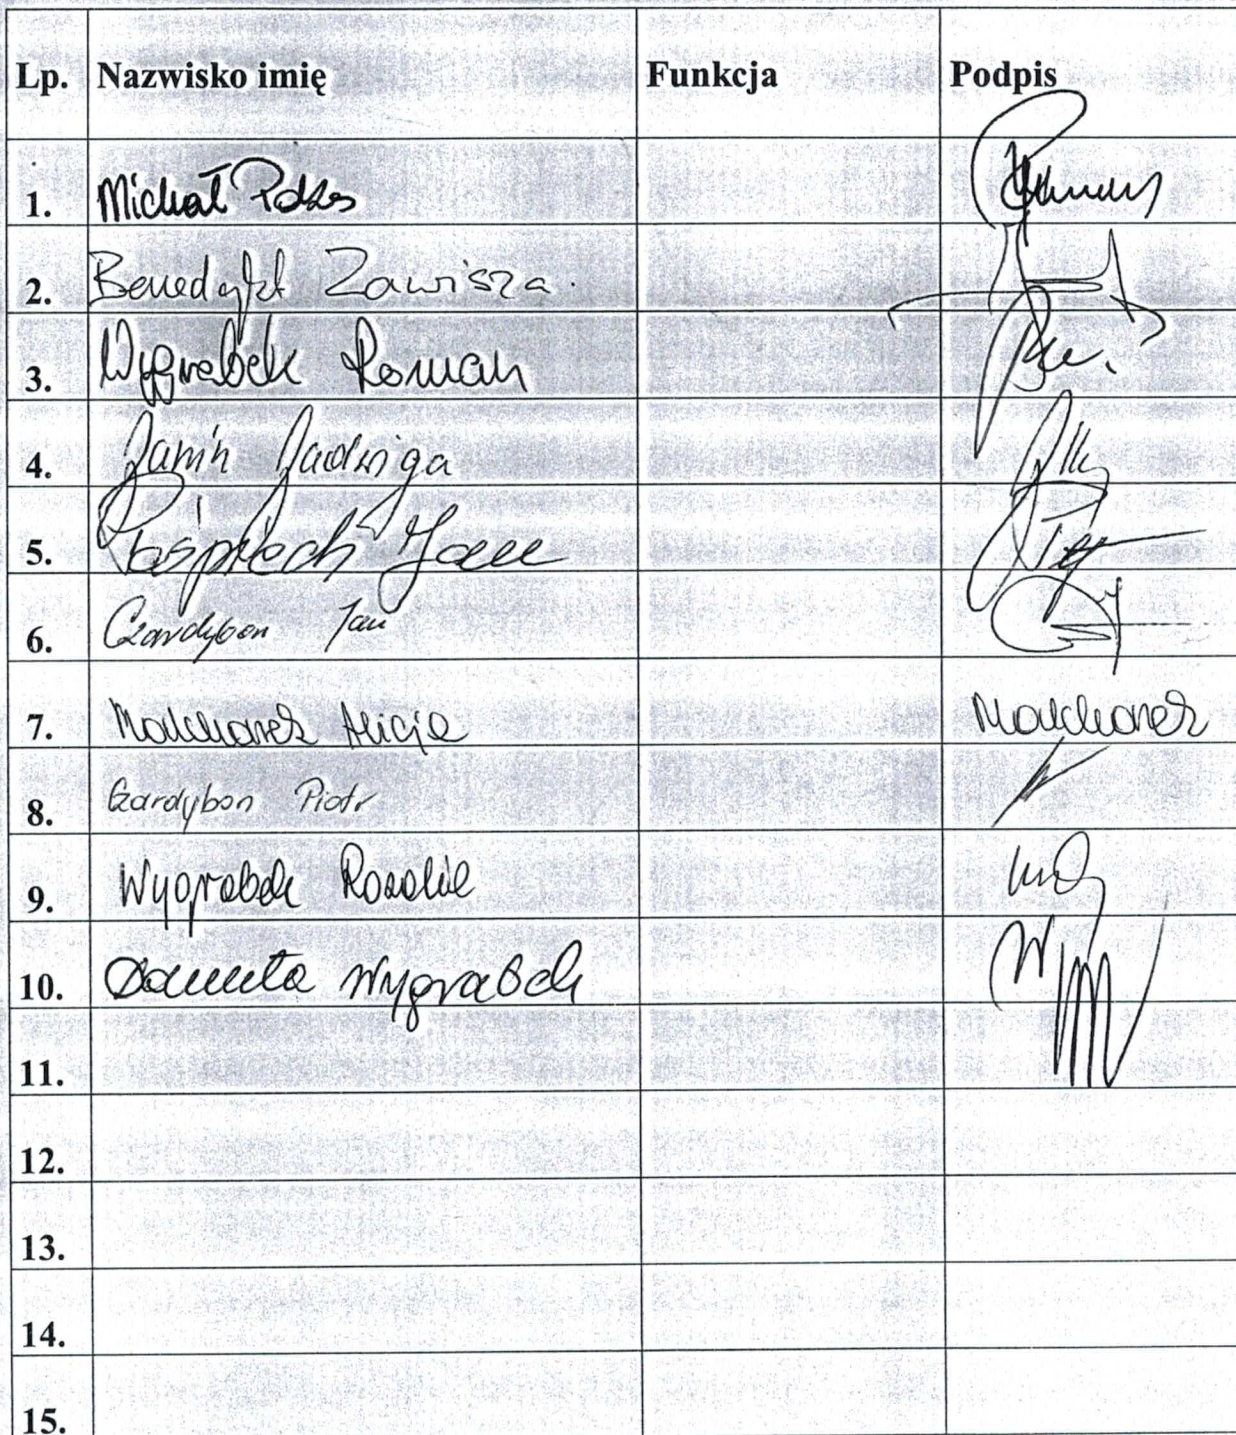 Lp. Nazwisko imię Funkcja Podpis
1. Michał
2. Benedykt Zawisza
3. Wygrabek Roman
4. Janik Jadwiga
5. Pośpiech
6. Czardybon Jan
7. Malcharek Alicja Malcharek
8. Czardybon Piotr
9. Wygrabek Rozalia
10. Danuta Wygrabek
11.
12.
13.
14.
15.